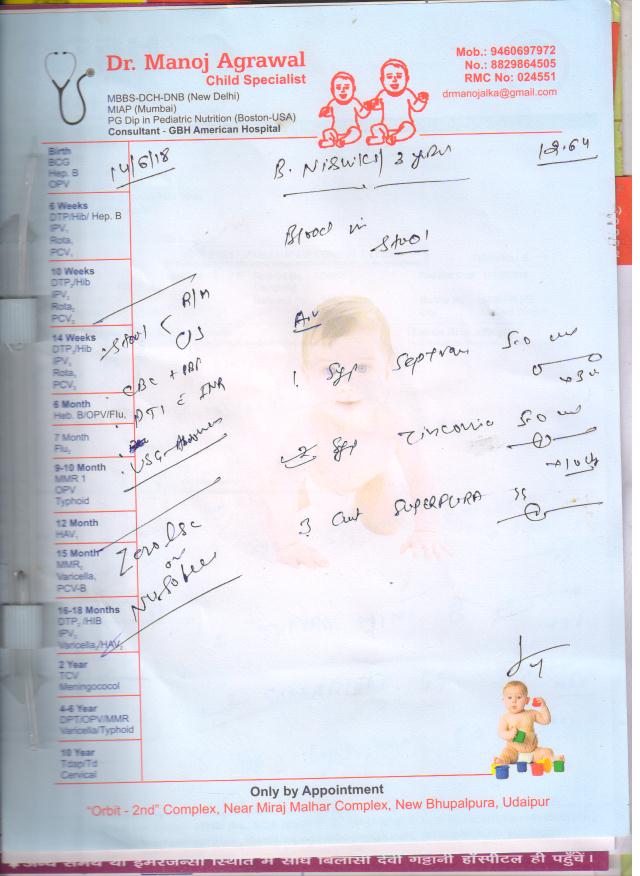 Dr. Manoj Agrawal
Child Specialist
MBBS-DCH-DNB (New Delhi)
MIAP (Mumbai)
PG Dip in Pediatric Nutrition (Boston-USA)
Consultant - GBH American Hospital
Mob.: 9460697972
No.: 8829864505
RMC No: 024551
drmanojalka@gmail.com
14/6/18
3 year
12.64
Blood in
Stool
Stool < R/M
C/S
CBC + PBF
INR
USG
Adv
1. Syp Septran 5.0 ml
2 Syp Zinconia 5.0 ml
3 SUPERPURA
or
Birth
BCG
Hep. B
OPV
6 Weeks
DTP/Hib/ Hep. B
IPV,
Rota,
PCV1
10 Weeks
DTP2/Hib
IPV2
Rota2
PCV2
14 Weeks
DTP3/Hib
IPV3
Rota3
PCV3
6 Month
Heb. B/OPV/Flu1
7 Month
Flu2
9-10 Month
MMR 1
OPV
Typhoid
12 Month
HAV1
15 Month
MMR2
Varicella,
PCV-B
16-18 Months
DTP, /HIB
IPV,
Varicella2/HAV2
2 Year
TCV
Meningococol
4-6 Year
DPT/OPV/MMR
Varicella/Typhoid
10 Year
Tdap/Td
Cervical
Only by Appointment
"Orbit - 2nd" Complex, Near Miraj Malhar Complex, New Bhupalpura, Udaipur
अन्य समय या इमरजेन्सी स्थिति में सीधे बिलासी देवी गट्टानी हॉस्पीटल ही पहुँचें।